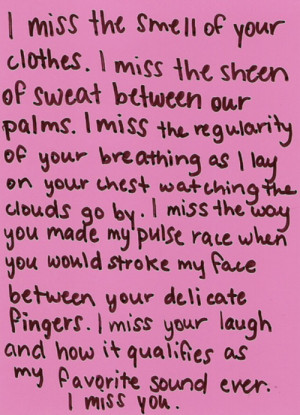 I miss the smell of your
clothes. I miss the sheen
of sweat between our
palms. I miss the regularity
of your breathing as I lay
on your chest watching the
clouds go by. I miss the way
you made my pulse race when
you would stroke my face
between your delicate
fingers. I miss your laugh
and how it qualifies as
my favorite sound ever.
I miss you.